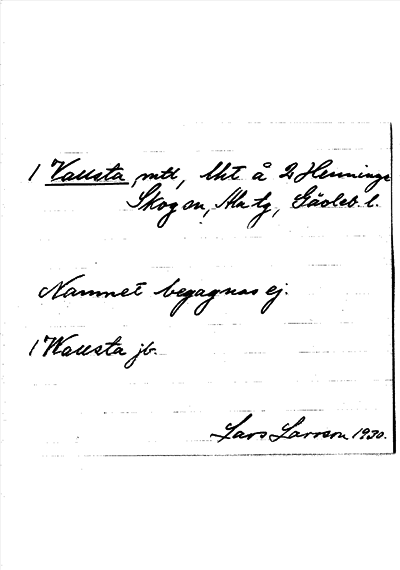 1 Vallsta, mtl, lht å 2 Hennings
Skog sn, Ala tg, Gävleb. l.
Namnet begagnas ej.
1 Wallsta jb.
Lars Larsson 1930.